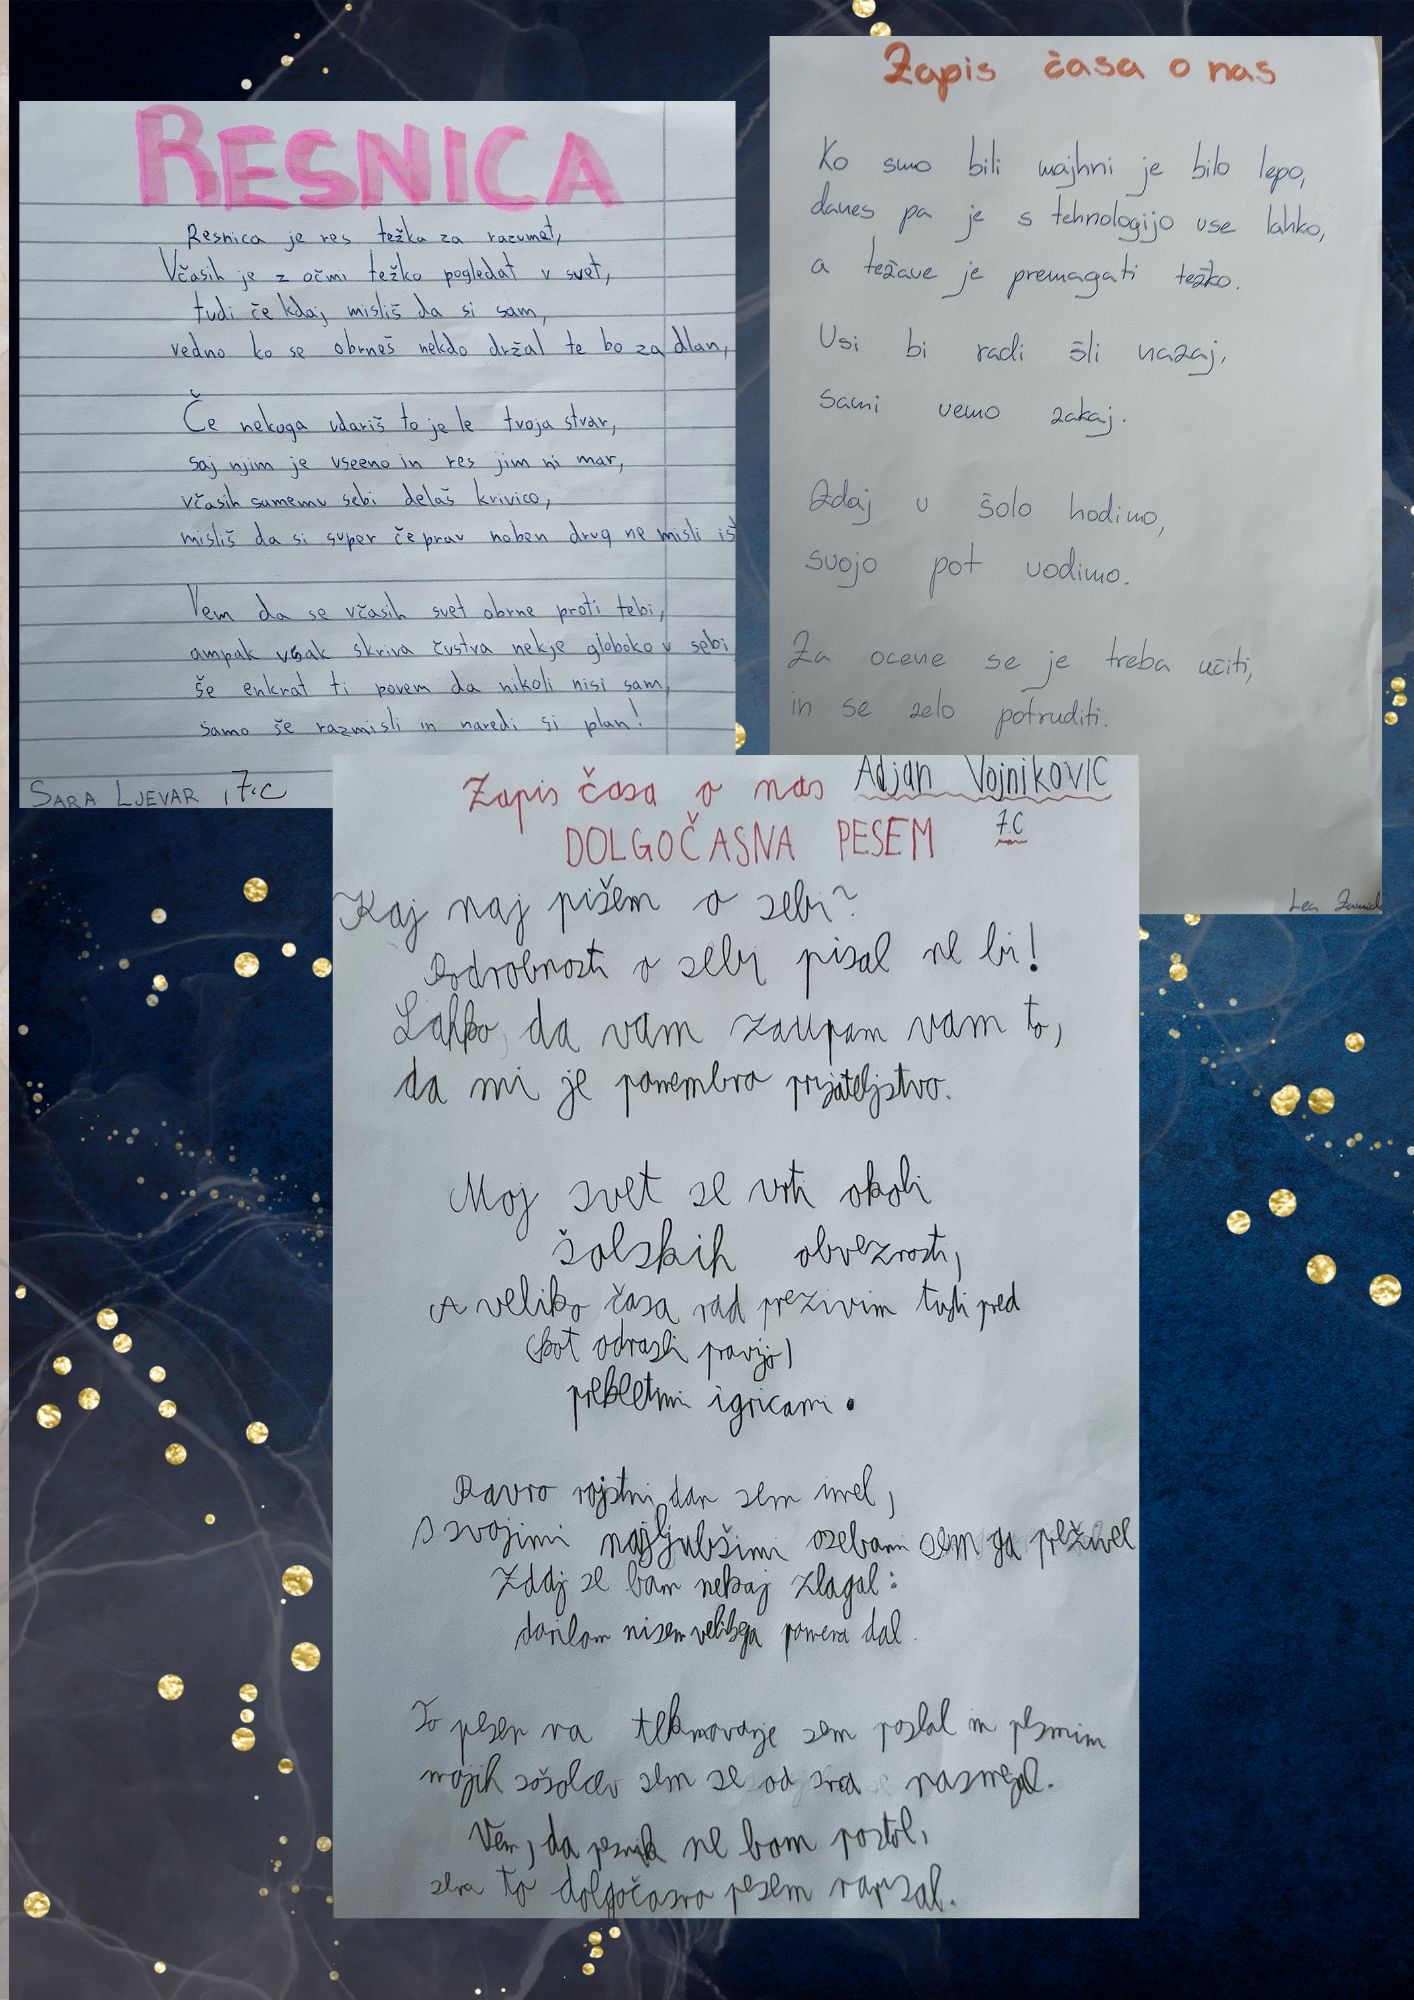 RESNICA
Resnica je res težka za razumet,
Včasih je z očmi težko pogledat v svet,
tudi če kdaj misliš da si sam,
vedno ko se obrneš nekdo držal te bo za dlan,
Če nekoga udariš to je le tvoja stvar,
saj njim je vseeno in res jim ni mar,
včasih samemu sebi delaš krivico,
misliš da si super čeprav noben drug ne misli ist
Vem da se včasih svet obrne proti tebi,
ampak vsak skriva čustva nekje globoko v sebi
še enkrat ti povem da nikoli nisi sam,
samo še razmisli in naredi si plan!
SARA LJEVAR, 7.C
Zapis časa o nas
Ko smo bili majhni je bilo lepo,
danes pa je s tehnologijo vse lahko,
a težave je premagati težko.
Vsi bi radi šli nazaj,
sami vemo zakaj.
Zdaj v šolo hodimo,
svojo pot vodimo.
Za ocene se je treba učiti,
in se zelo potruditi.
Lea
Zapis časa o nas Adjan Vojniković
DOLGOČASNA PESEM 7.C
Kaj naj pišem o sebi?
Podrobnosti o sebi pisal ne bi!
Lahko da vam zaupam vam to,
da mi je pomembno prijateljstvo.
Moj svet se vrti okoli
šolskih obveznosti,
A veliko časa rad preživim tudi pred
(kot odrasli pravijo)
prekletimi igricami.
Ravno rojstni dan sem imel,
s svojimi najljubšimi osebami sem ga preživel
Zdaj se bom nekaj zlagal:
darilom nisem velikega pomena dal.
To pesem na tekmovanje sem poslal in pesmim
mojih sošolcev sem se od srca nasmejal.
Vem, da pesnik ne bom postal,
sem to dolgočasno pesem napisal.